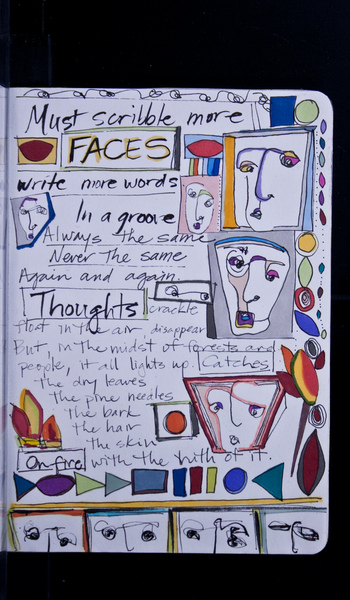 Must scribble more
FACES
write more words
In a groove
Always the same
Never the same
Again and again.
Thoughts crackle
float in the air disappear
But, in the midst of forests and
people, it all lights up. Catches
the dry leaves
the pine needles
the bark
the hair
the skin
On fire with the truth of it.